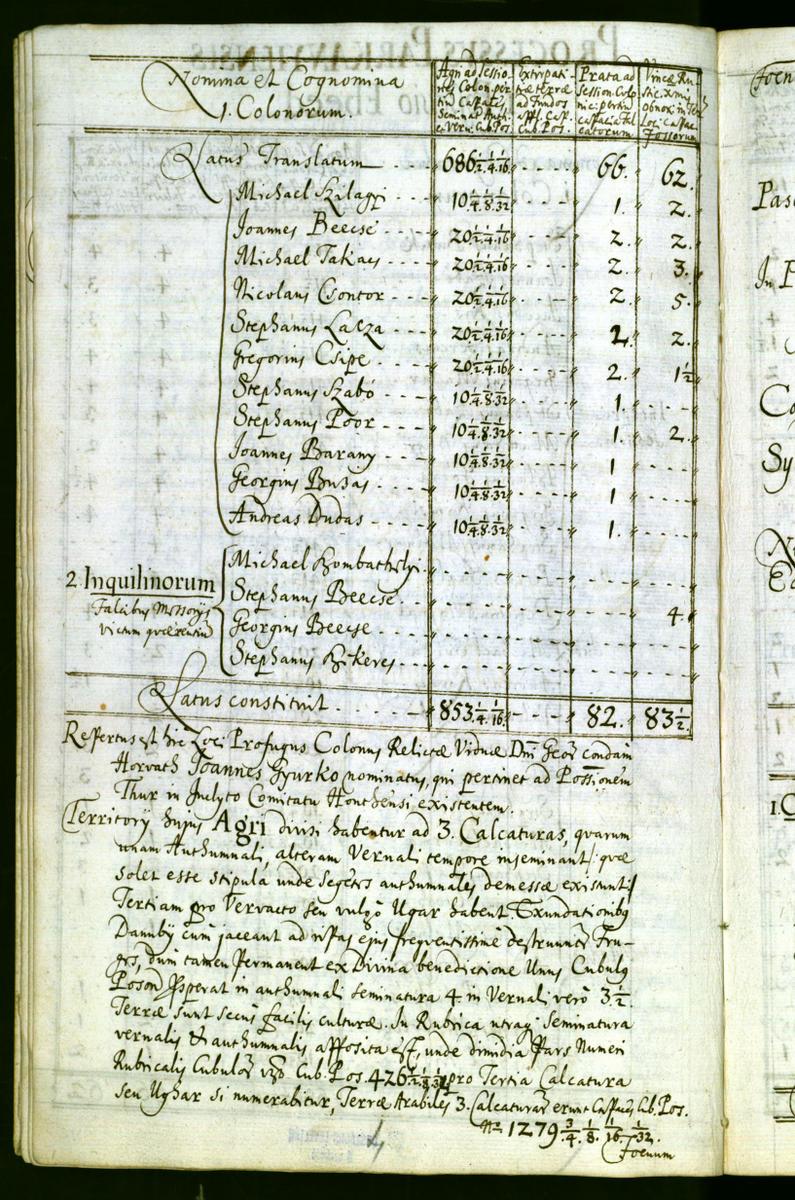 Nomina et Cognomina
1. Colonorum.
Agri ad Sessiones Colon. pertin. capaces Seminat. Auth. et Vern. Cub. Pos.
Extirpatitiæ terræ ad Fundos appl. Cap. Cub. Pos.
Prata ad Session. Colonic. pertin. capacia Falcatorum
Vineæ Rustic. obnox. in Terr. Loci Capac. Fossorum
Latus Translatum 686 1/2. 1/4. 1/16 66. 62.
Michael Szilagyi 10 1/4. 1/8. 1/32 1. 2.
Joannes Beecse 20 1/2. 1/4. 1/16 2. 2.
Michael Takacs 20 1/2. 1/4. 1/16 2. 3.
Nicolaus Csontor 20 1/2. 1/4. 1/16 2. 5.
Stephanus Lacza 20 1/2. 1/4. 1/16 2. 2.
Gregorius Csipe 20 1/2. 1/4. 1/16 2. 1 1/2
Stephanus Szabó 10 1/4. 1/8. 1/32 1.
Stephanus Poor 10 1/4. 1/8. 1/32 1. 2.
Joannes Barany 10 1/4. 1/8. 1/32 1
Georgius Busas 10 1/4. 1/8. 1/32 1
Andreas Dudas 10 1/4. 1/8. 1/32 1.
2. Inquilinorum
Falcibus Messorijs
victum quærentiu
Michael Szombathelyi
Stephanus Beecse 4.
Georgius Beecse
Stephanus Szikeres
Latus constituit 853 1/4. 1/16 82. 83 1/2.
Repertus est hic Loci Profugus Colonus Relictæ Viduæ Dni Geor condam
Horvath Joannes Gyurko nominatus, qui pertinet ad Possionem
Thur in Inclyto Comitatu Honthensi existentem.
Territorij hujus Agri divisi habentur ad 3. Calcaturas, quarum
unam Authumnali, alteram Vernali tempore inseminant /: quæ
solet esse stipula unde Segetes authumnales demessæ existunt :/
Tertiam pro Vervacto seu vulgo Ugar habent. Exundationibq
Danubij cum jaceant ad ripas ejus frequentissime destruuntr Fru-
ges, dum tamen Permanent ex Divina benedictione Unus Cubulq
Poson prosperat in authumnali seminatura 4 in Vernali vero 3 1/2.
Terræ sunt secus facilis culturæ. In Rubrica utraq Seminatura
vernalis & authumnalis apposita est, unde dimidia Pars Numeri
Rubricalis Cubulor Cub. Pos. 426 1/2. 1/8. 1/32 pro Tertia Calcatura
seu Ughar si numerabitur, Terræ Arabiles 3. Calcaturar erunt Capaces Cub. Pos.
Nro 1279 3/4. 1/8. 1/16. 1/32.
Foenum